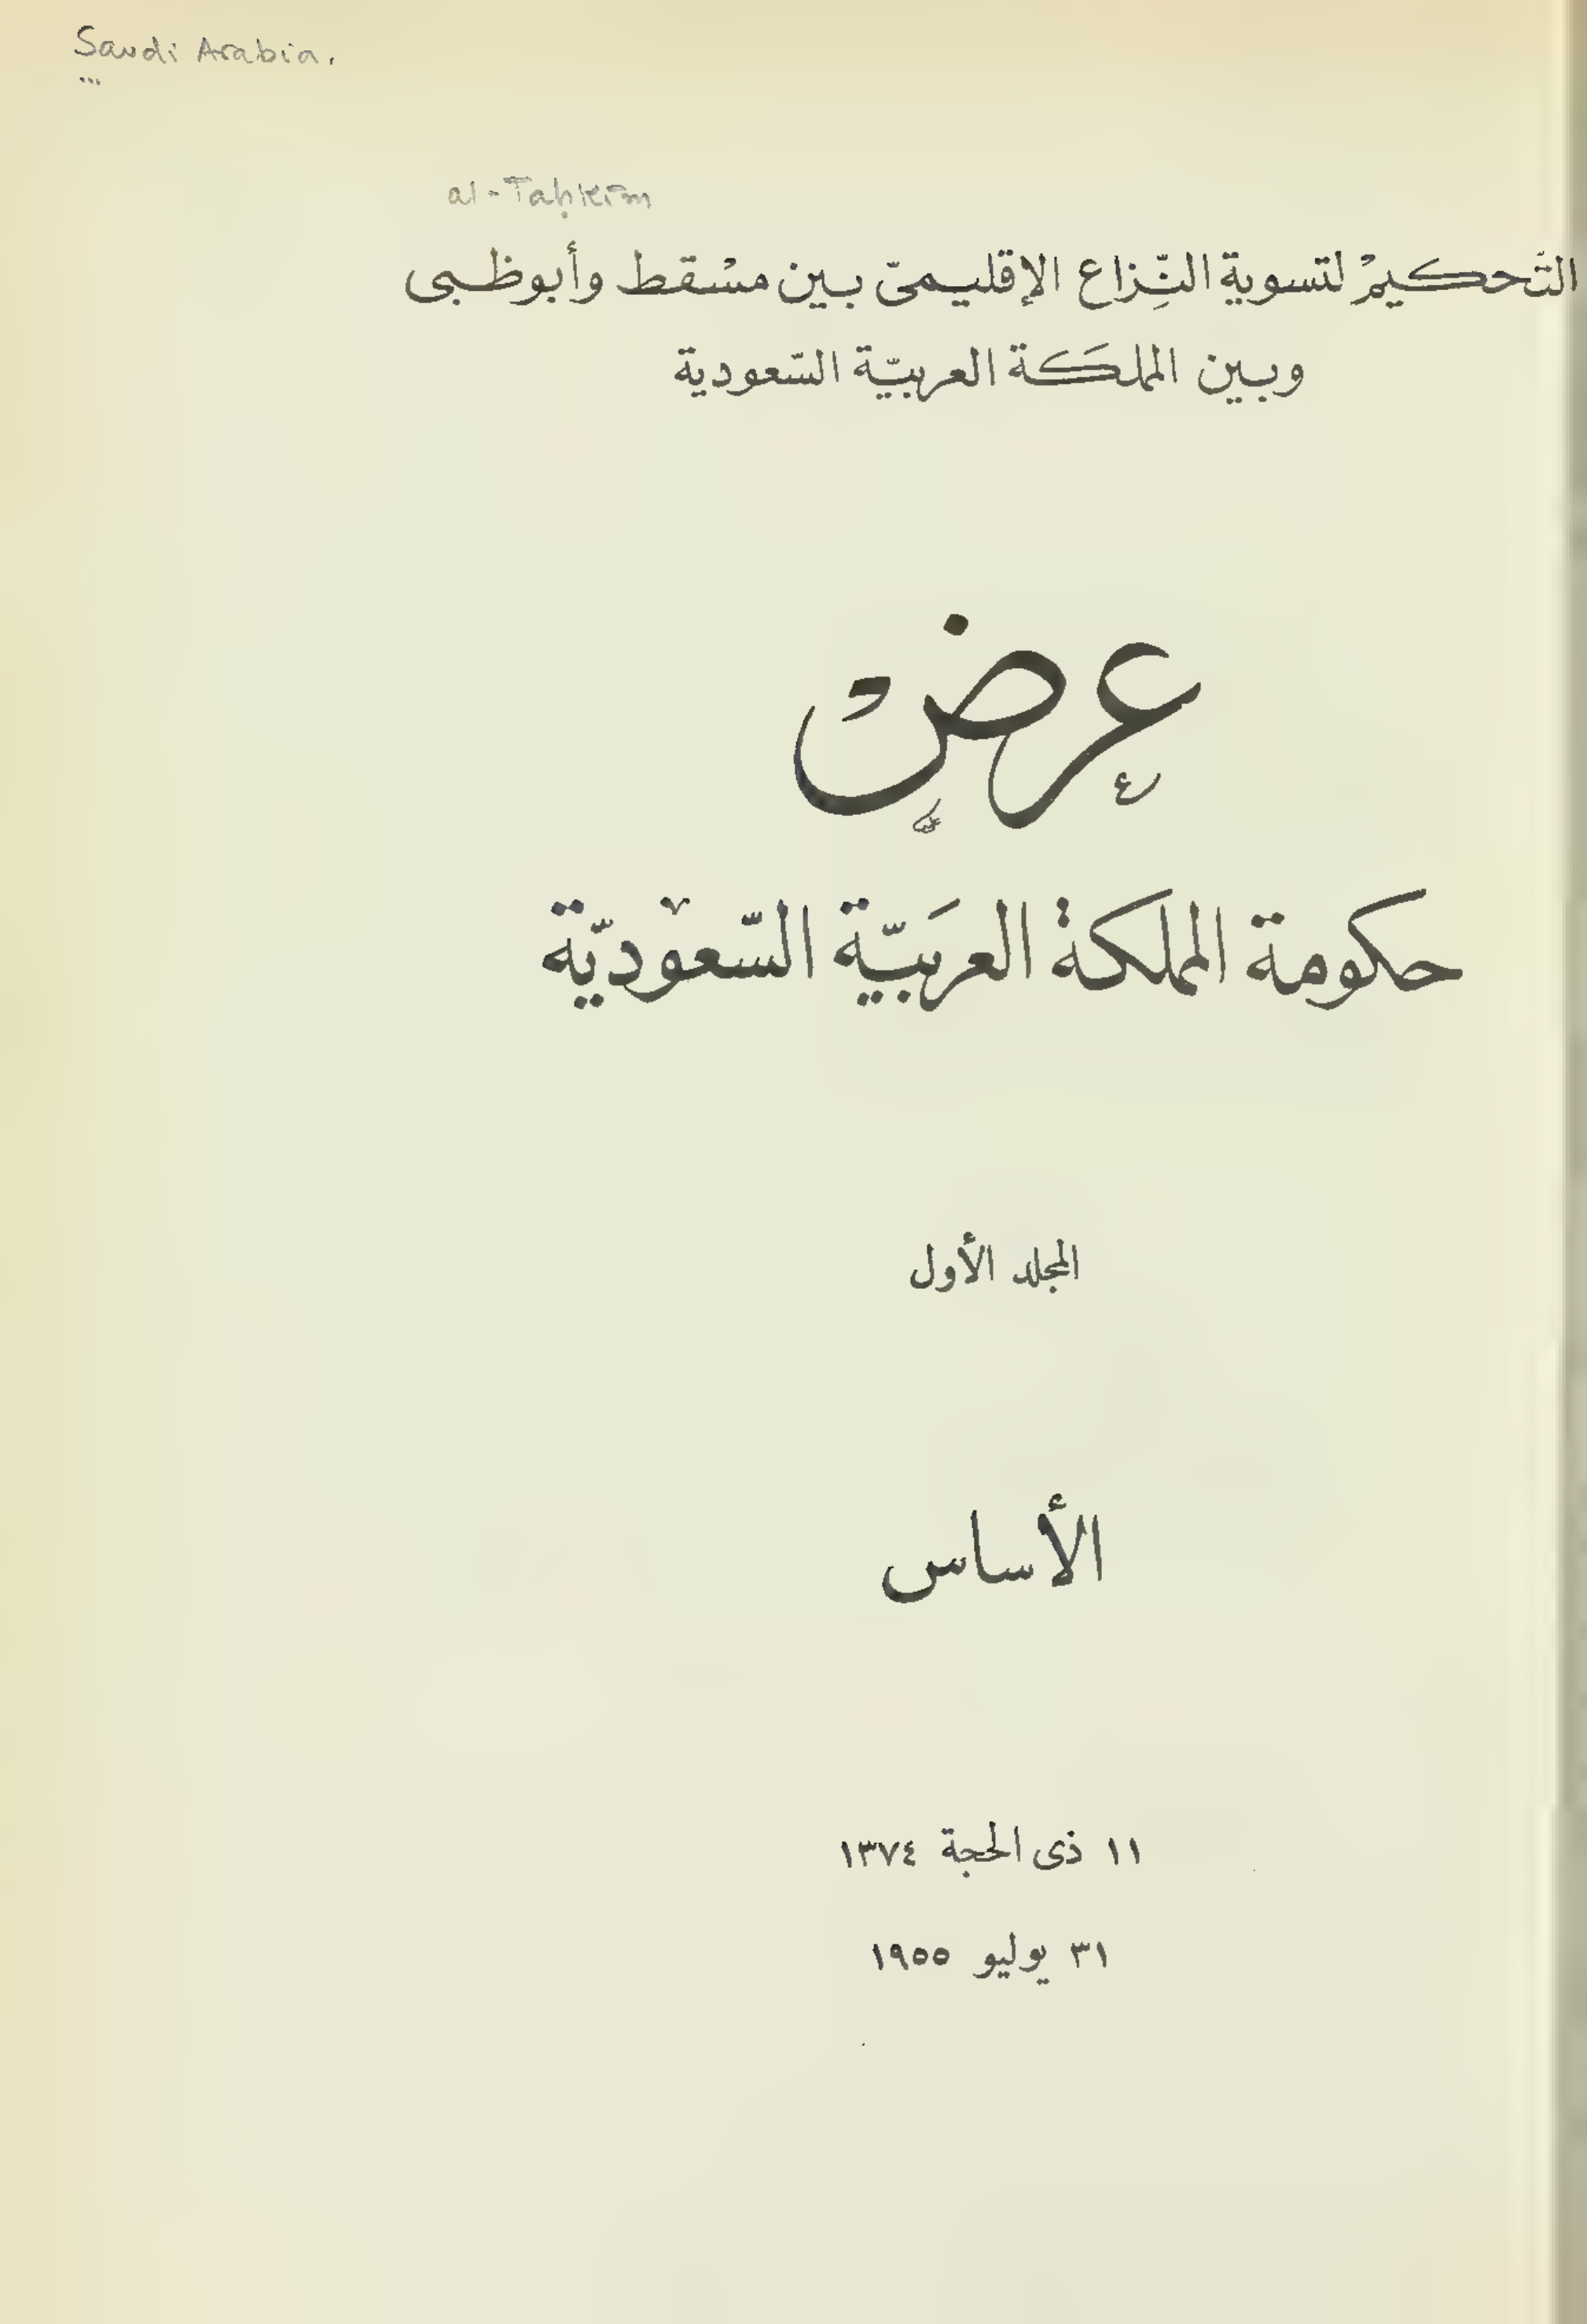 Saudi Arabia.
al-Taḥkīm
التَّحكيمْ لتسوية النِّزاع الإقليمىّ بين مسْقط وأبوظبى
وبين المملكَة العربيّة السّعودية
عرض
حكومة المملكة العرَبيّة السّعوديّة
المجلد الأول
الأساس
١١ ذى الحجة ١٣٧٤
٣١ يوليو ١٩٥٥